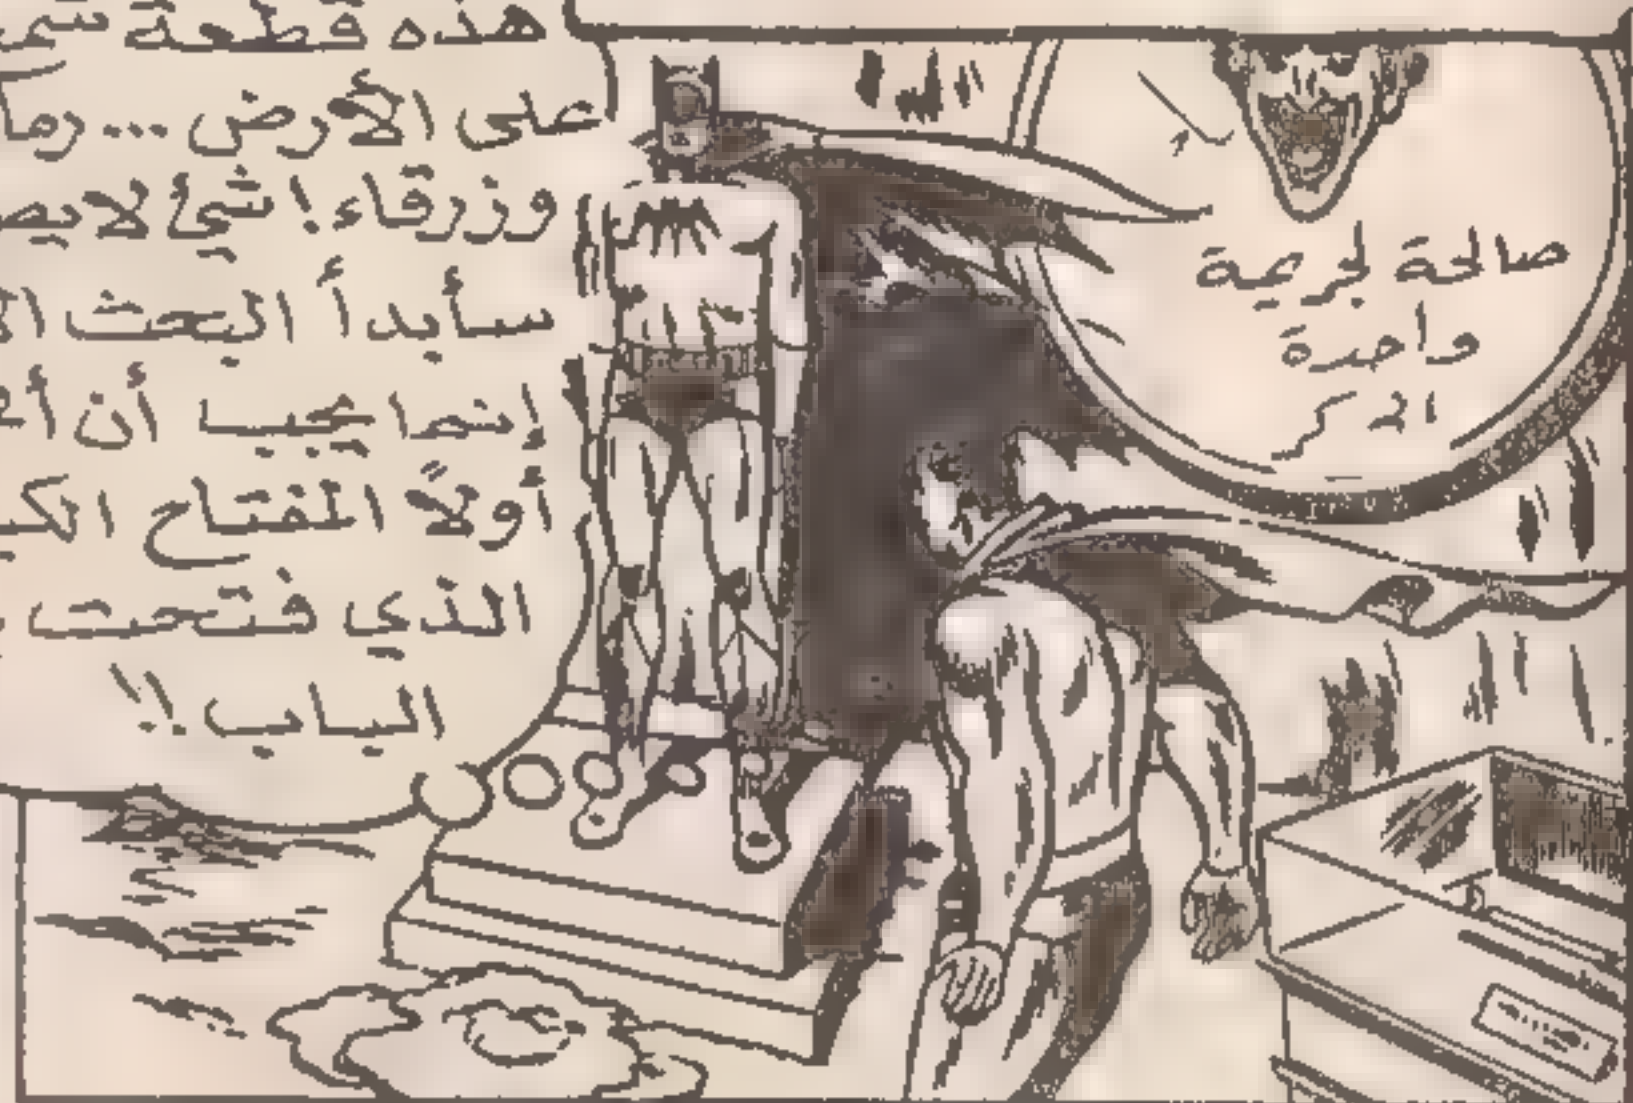 هذه قطعة شمع
على الأرض ... رما
وزرقاء! شئ لايص
سأبدأ البحث الا
إنما يجب أن أ
أولاً المفتاح الكب
الذي فتحت
الباب!!
صالحة لجريمة
واحدة